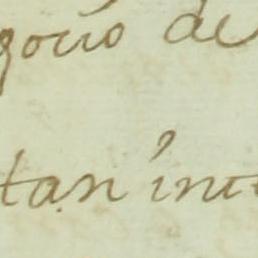 gocio de
tan int